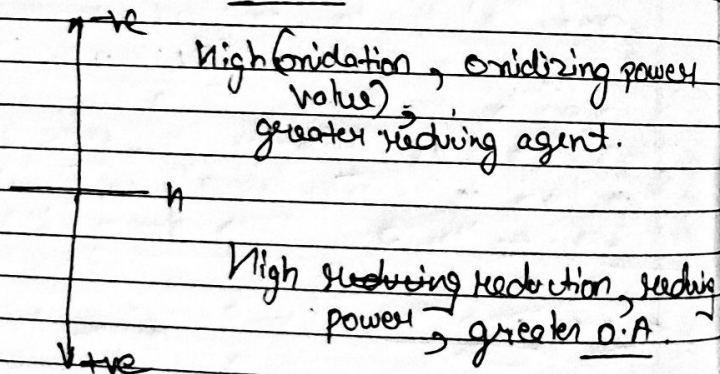 -ve
High (oxidation, oxidizing power
value),
greater reducing agent.
H
High reducing reduction, reducing
power, greater O.A.
+ve